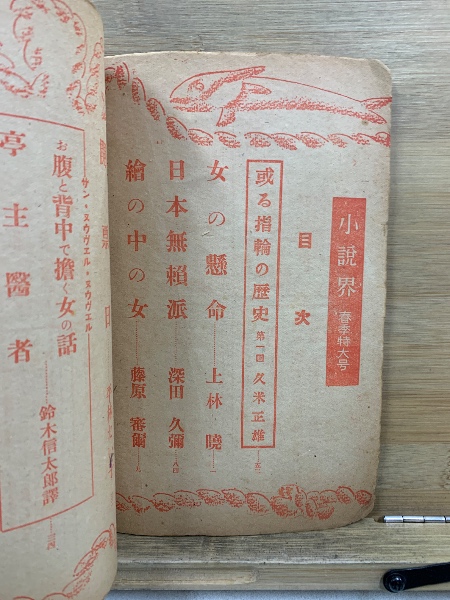 小說界 春季特大号
目次
或る指輪の歴史 第一回 久米正雄
女の懸命 上林曉
日本無賴派 深田久彌
繪の中の女 藤原審爾
サン・ヌウヴェル・ヌウヴェル
お腹と背中で擔ぐ女の話
亭主醫者
鈴木信太郎譯